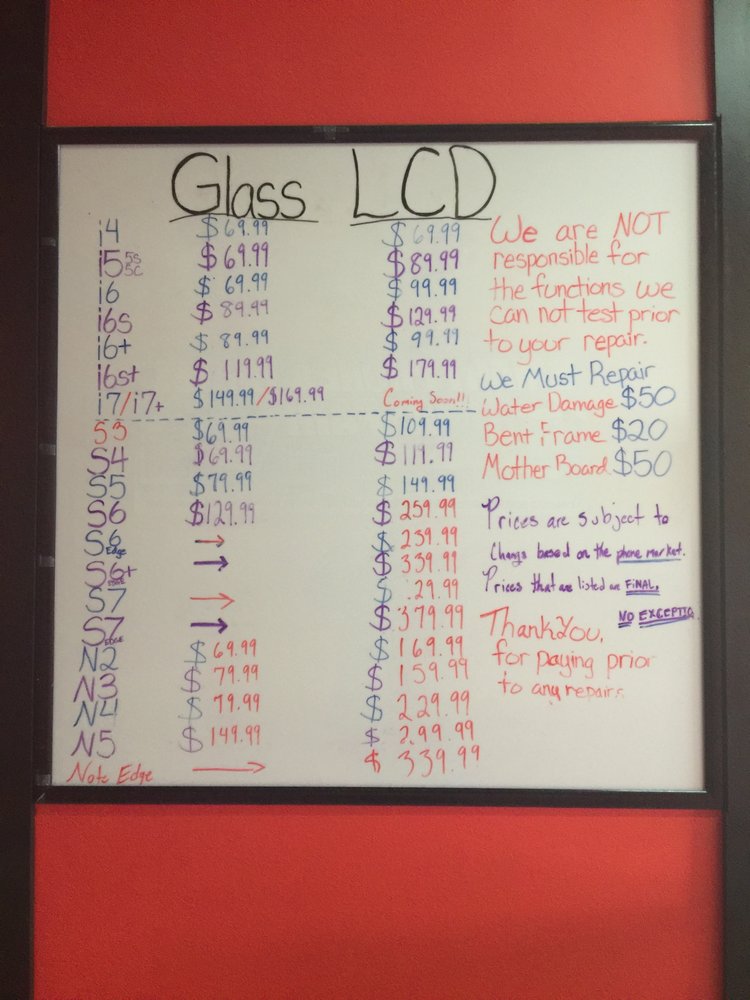 Glass LCD
i4 $69.99 $69.99
i5 5s 5c $69.99 $89.99
i6 $69.99 $99.99
i6s $89.99 $129.99
i6+ $89.99 $99.99
i6s+ $119.99 $179.99
i7/i7+ $149.99/$169.99 Coming Soon!!
S3 $69.99 $109.99
S4 $69.99 $119.99
S5 $79.99 $149.99
S6 $129.99 $259.99
S6 Edge → $239.99
S6+ EDGE → $339.99
S7 → $ .29.99
S7 EDGE → $379.99
N2 $69.99 $169.99
N3 $79.99 $159.99
N4 $79.99 $229.99
N5 $149.99 $299.99
Note Edge → $339.99
We are NOT
responsible for
the functions we
can not test prior
to your repair.
We Must Repair
Water Damage $50
Bent Frame $20
Mother Board $50
Prices are subject to
Change based on the phone market.
Prices that are listed are FINAL.
NO EXCEPTIO
Thank You,
for paying prior
to any repairs